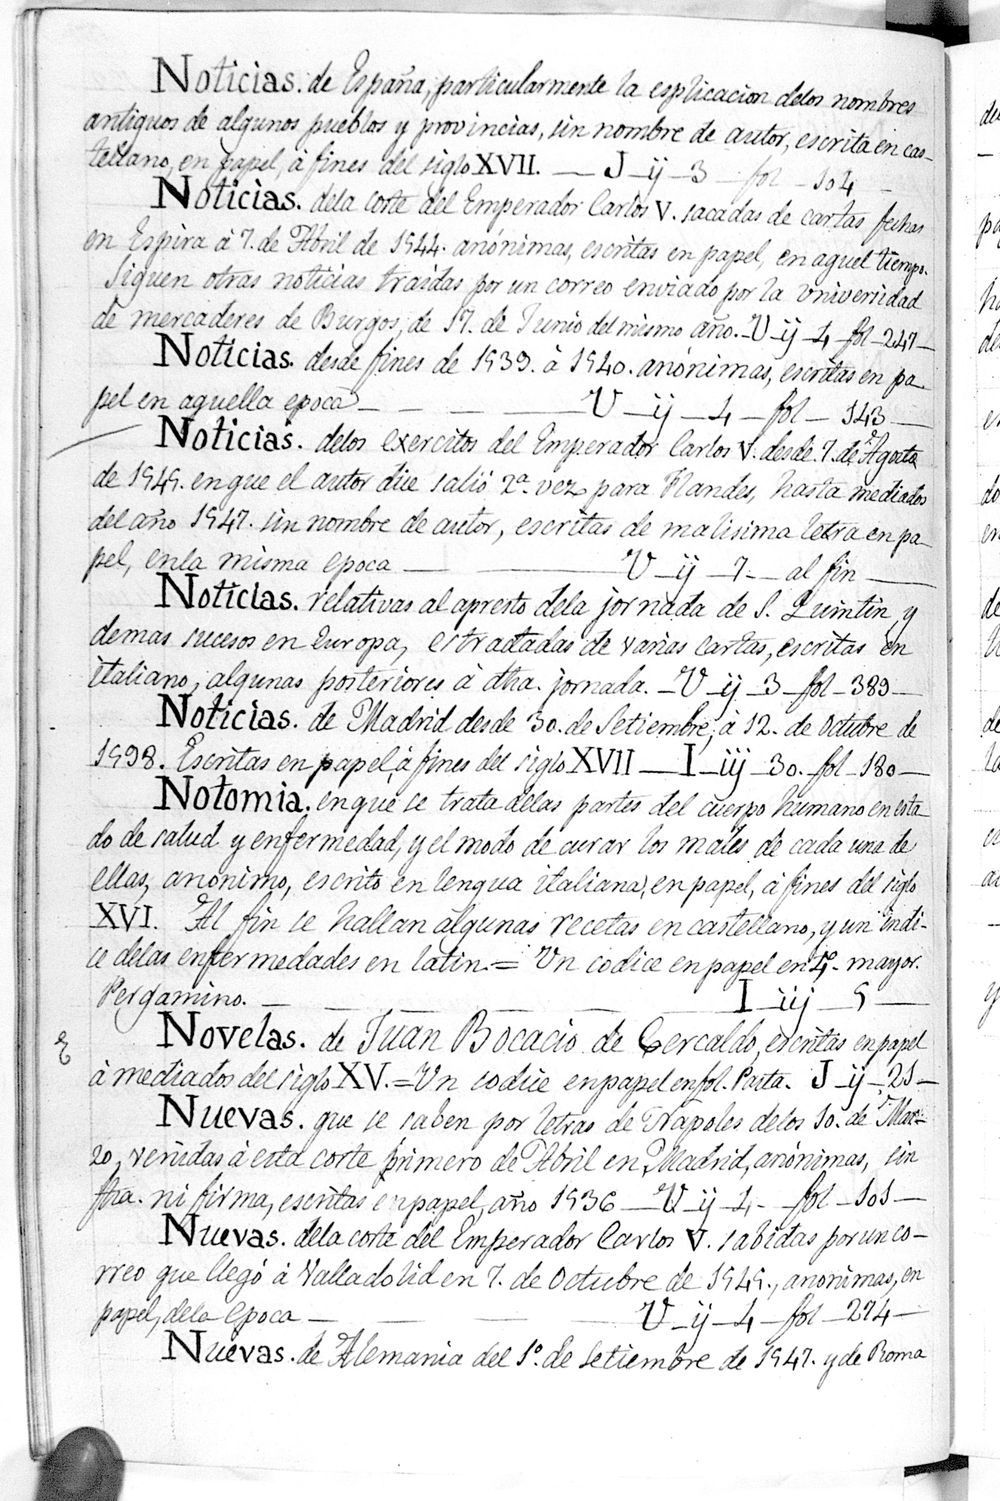 Noticias. de España, particularmente la esplicacion delos nombres
antiguos de algunos pueblos y provincias, sin nombre de autor, escrita en cas-
tellano, en papel, à fines del siglo XVII. — J-ij-3 fol-104-
Noticias. dela corte del Emperador Carlos V. sacadas de cartas fechas
en Espira à 7. de Abril de 1544. anónimas, escritas en papel, en aquel tiempo.
Siguen otras noticias traidas por un correo enviado por la Vniversidad
de mercaderes de Burgos, de 17. de Junio del mismo año.-V-ij-4-fol-247-
Noticias. desde fines de 1539. à 1540. anónimas, escritas en pa-
pel en aquella epoca — V-ij-4-fol-143-
Noticias. delos exercitos del Emperador Carlos V. desde 7. de Agosto
de 1545. en que el autor dice salió 2ª. vez para Flandes, hasta mediados
del año 1547. sin nombre de autor, escritas de malisima letra en pa-
pel, enla misma epoca — V-ij-7-al fin-
Noticias. relativas al apresto dela jornada de S. Quintin, y
demas sucesos en Europa, estractadas de varias cartas, escritas en
italiano, algunas posteriores à dha. jornada.-V-ij-3-fol-389-
Noticias. de Madrid desde 30. de Setiembre, à 12. de Octubre de
1598. Escritas en papel, à fines del siglo XVII — I-iij-30.-fol-180-
Notomia. en que se trata delas partes del cuerpo humano en esta-
do de salud y enfermedad, y el modo de curar los males de cada una de
ellas, anonimo, escrito en lengua italiana, en papel, à fines del siglo
XVI. Al fin se hallan algunas recetas en castellano, y un indi-
ce delas enfermedades en latin.= Vn codice en papel en 4º. mayor.
Pergamino. — I-iij-5-
Novelas. de Juan Bocacio de Cercaldo, escritas en papel
à mediados del siglo XV.=Vn codice en papel en fol. Pasta. J-ij-21-
Nuevas. que se saben por letras de Napoles delos 10. de Mar-
zo, venidas à esta corte primero de Abril en Madrid, anónimas, sin
fha. ni firma, escritas en papel, año 1536 — V-ij-4-fol-101-
Nuevas. dela corte del Emperador Carlos V. sabidas por un co-
rreo que llegó à Valladolid en 7. de Octubre de 1545., anonimas, en
papel, dela epoca — V-ij-4-fol-274-
Nuevas. de Alemania del 1º. de setiembre de 1547. y de Roma